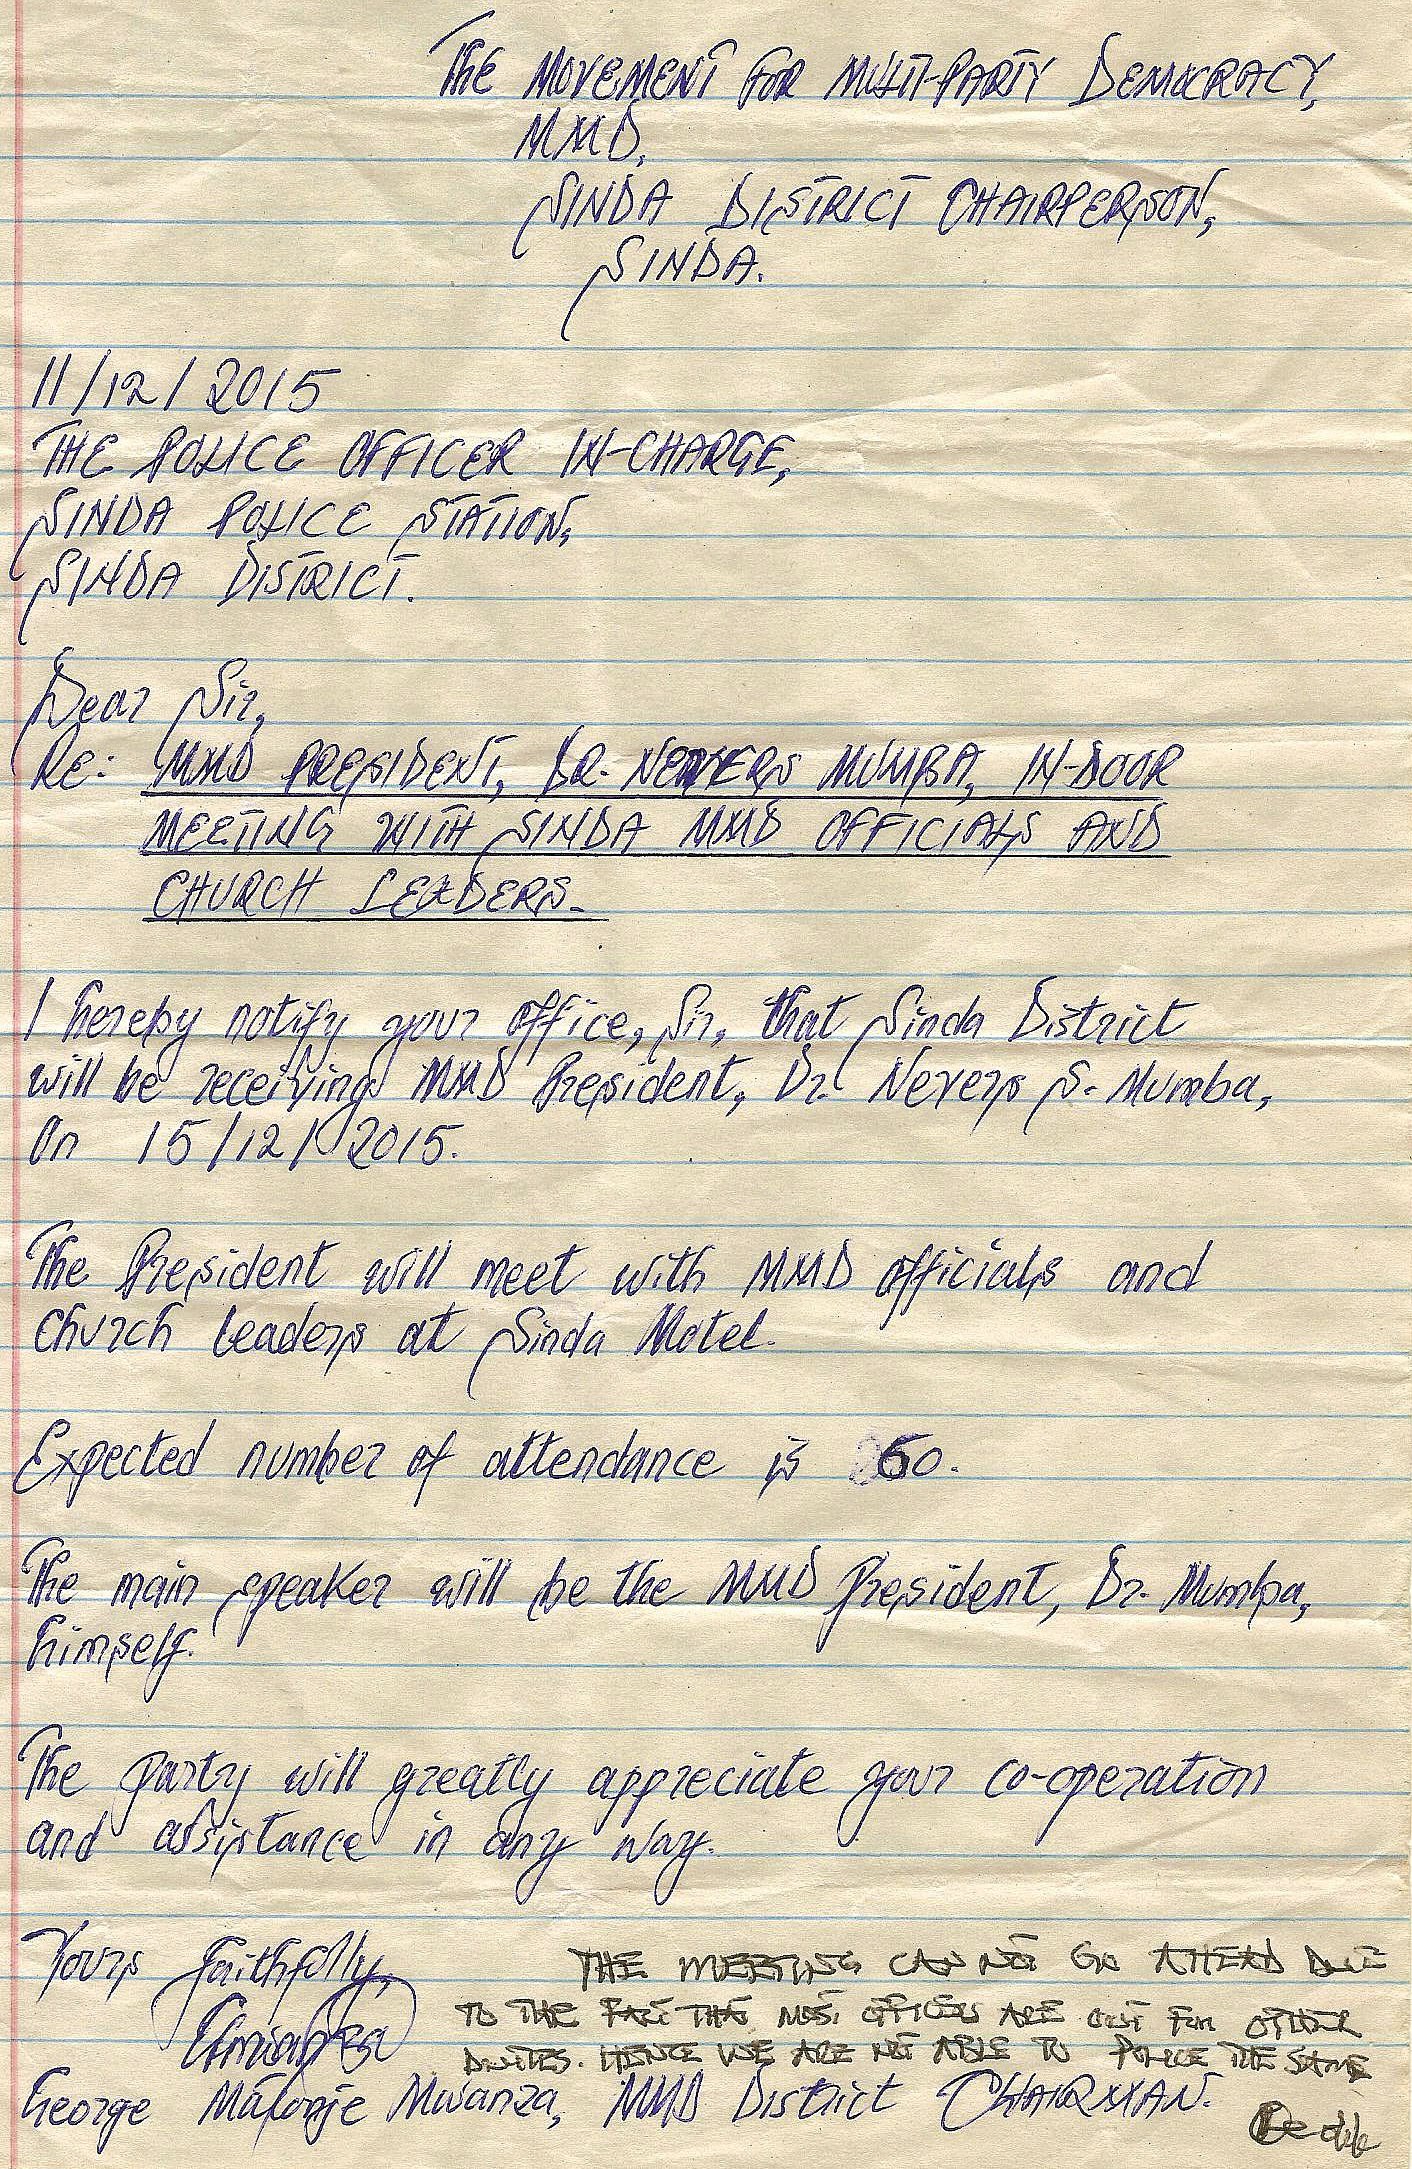 THE MOVEMENT FOR MULTI-PARTY DEMOCRACY,
MMD,
SINDA DISTRICT CHAIRPERSON,
SINDA.
11/12/2015
THE POLICE OFFICER IN-CHARGE,
SINDA POLICE STATION,
SINDA DISTRICT.
Dear Sir,
Re: MMD PRESIDENT, DR. NEVERS MUMBA, IN-DOOR
MEETING WITH SINDA MMD OFFICIALS AND
CHURCH LEADERS.
I hereby notify your office, Sir, that Sinda District
will be receiving MMD President, Dr. Nevers S. Mumba,
On 15/12/2015.
The President will meet with MMD officials and
Church leaders at Sinda Motel.
Expected number of attendance is 60.
The main speaker will be the MMD President, Dr. Mumba,
himself.
The party will greatly appreciate your co-operation
and assistance in any way.
Yours faithfully,
THE MEETING CAN NOT GO AHEAD DUE
TO THE FACT THAT MOST OFFICERS ARE OUT FOR OTHER
DUTIES. HENCE WE ARE NOT ABLE TO POLICE THE SAME
George Mwanza, MMD District CHAIRMAN.